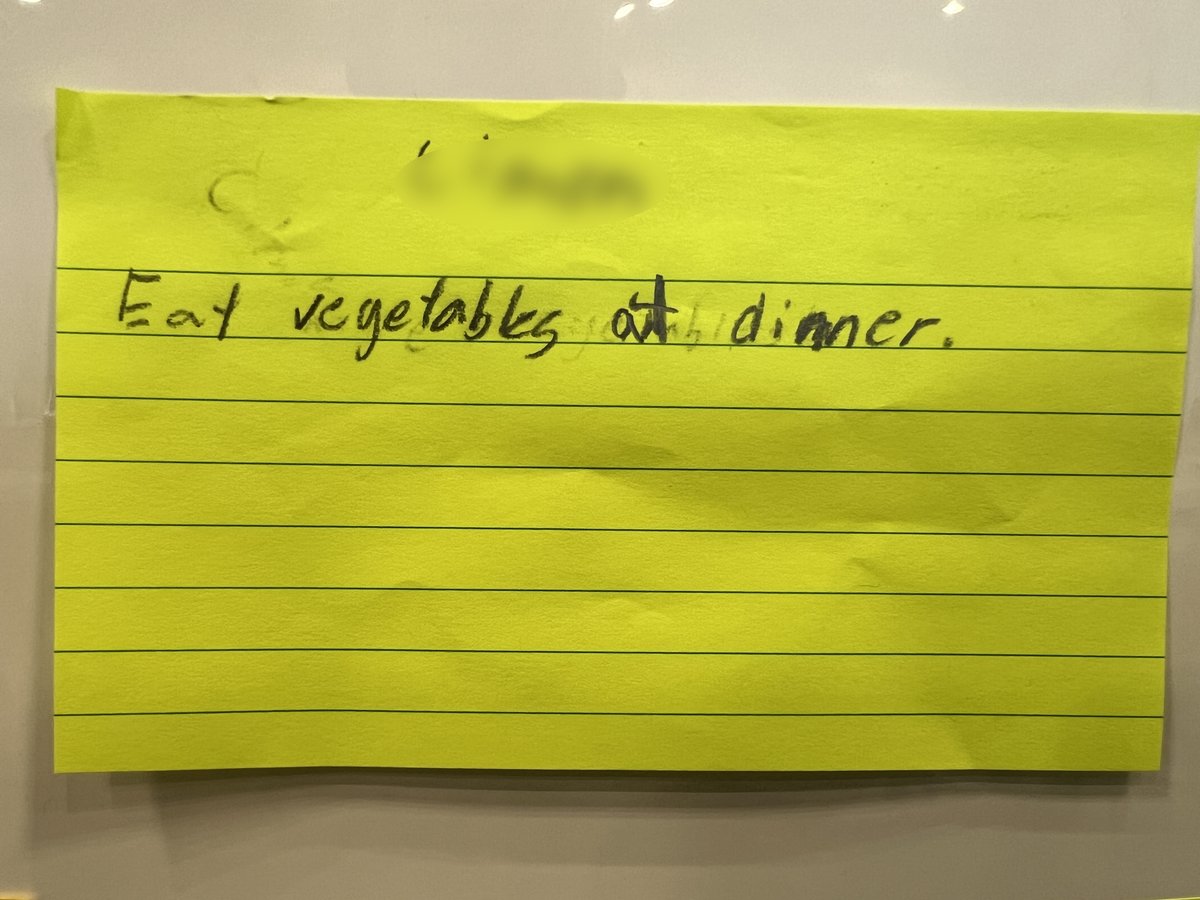 Eat vegetables at dinner.